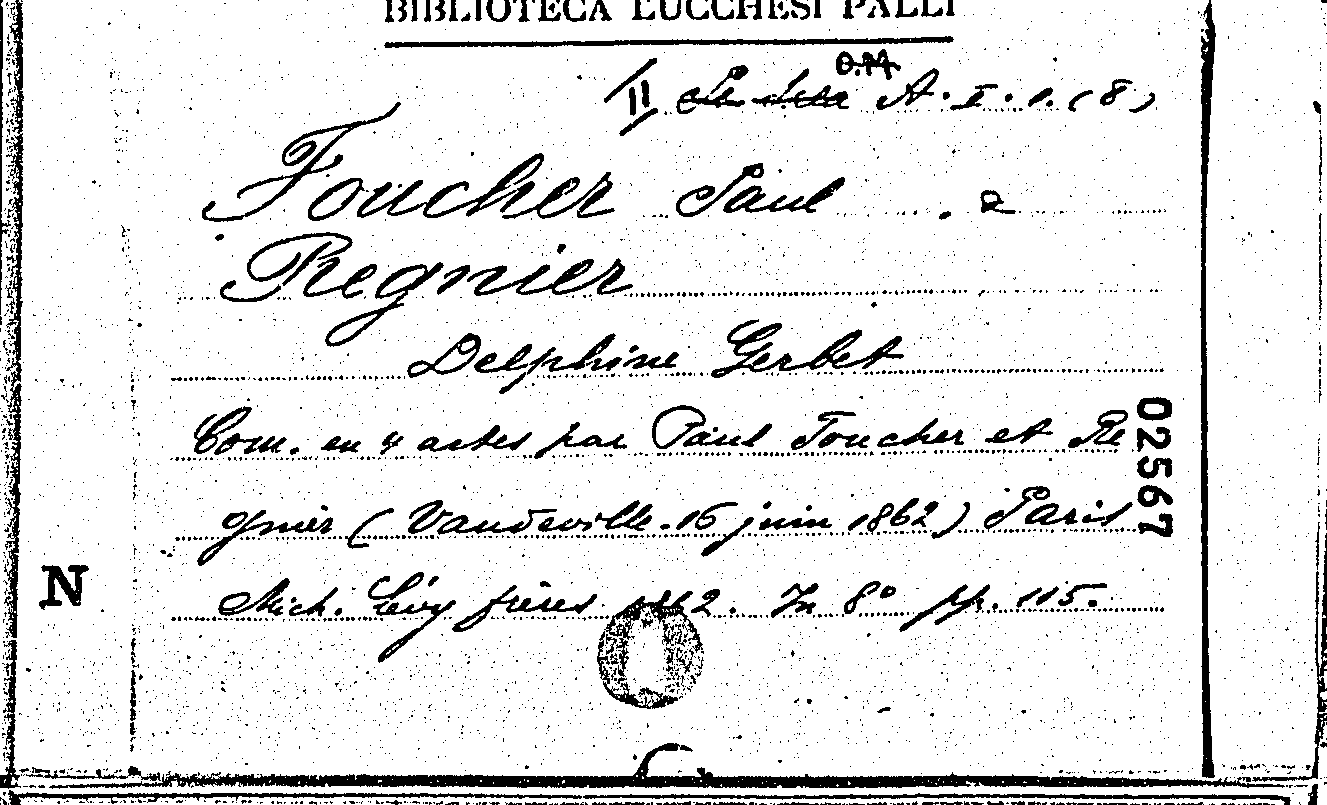 BIBLIOTECA LUCCHESI PALLI
II A. I. 1. (8)
Foucher Paul . e
Regnier
Delphine Gerbet
Com. en 4 actes par Paul Foucher et Re
gnier (Vaudeville. 16 juin 1862) Paris
Mich. Lévy frères 1862. In 8° pp. 115.
02567
N